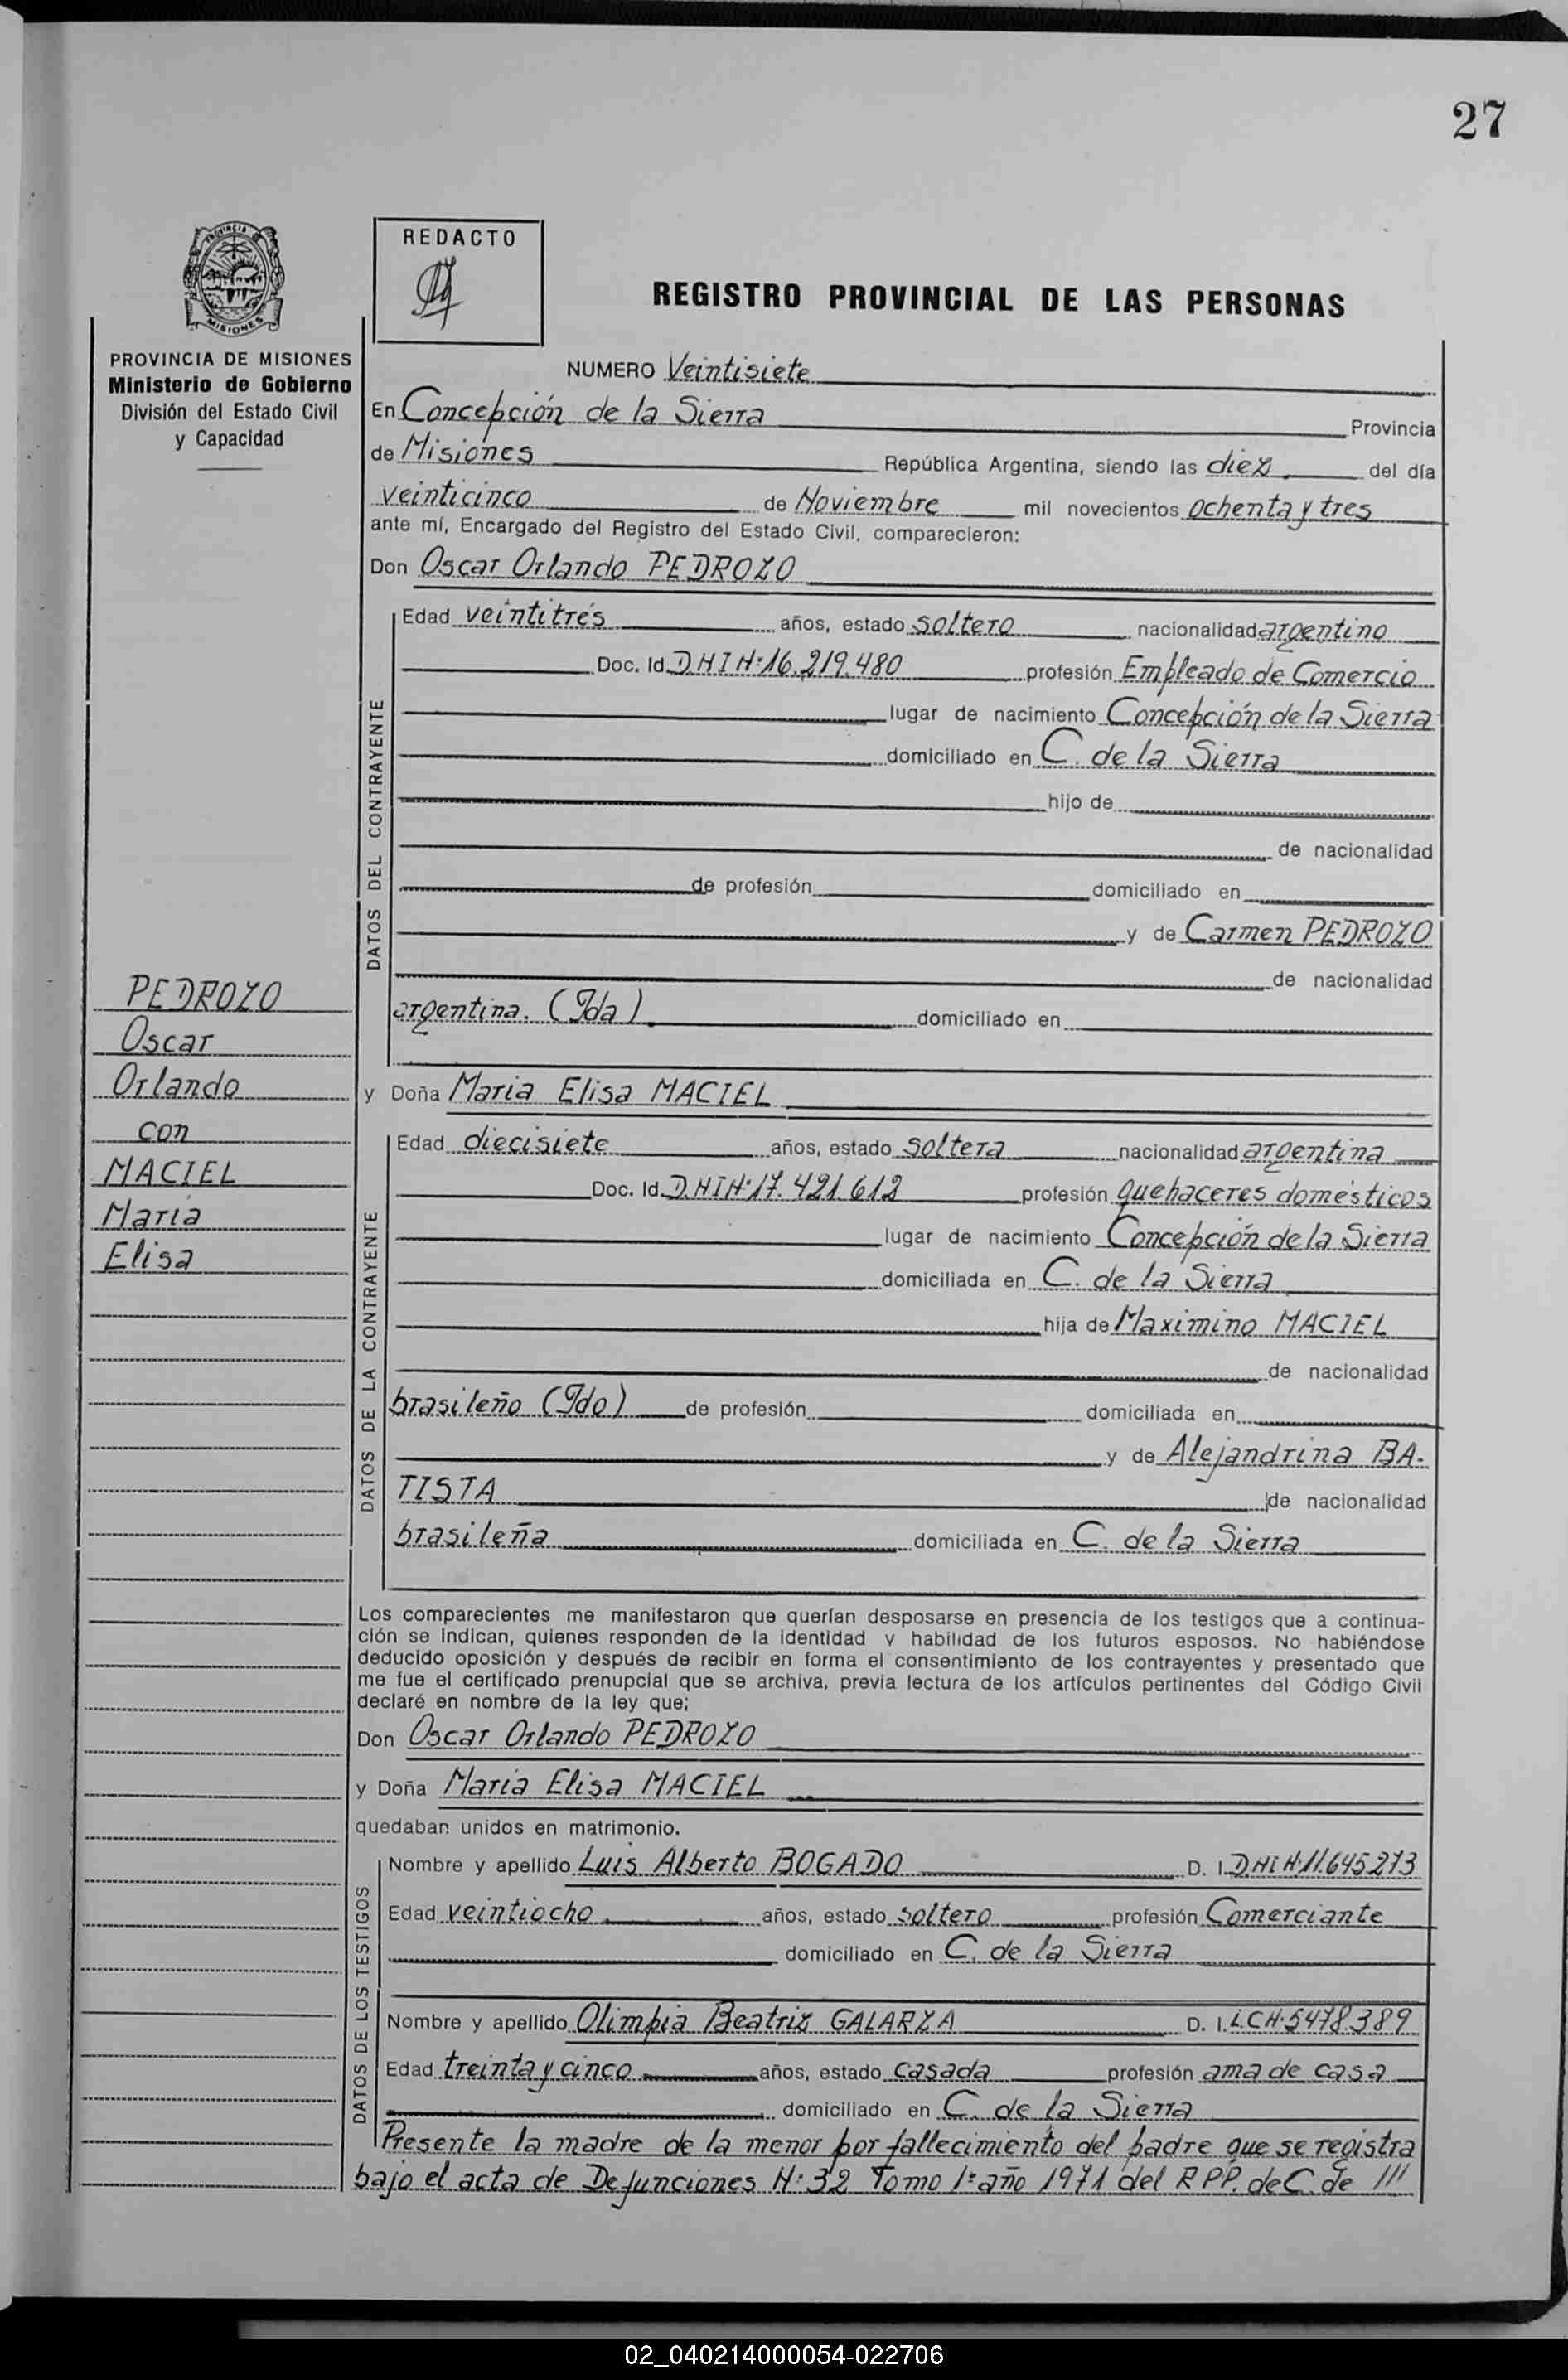 27
PROVINCIA DE
MISIONES
REDACTO
REGISTRO PROVINCIAL DE LAS PERSONAS
PROVINCIA DE MISIONES
Ministerio de Gobierno
División del Estado Civil
y Capacidad
NUMERO Veintisiete
En Concepción de la Sierra Provincia
de Misiones República Argentina, siendo las diez del día
veinticinco de Noviembre mil novecientos ochenta y tres
ante mí, Encargado del Registro del Estado Civil, comparecieron:
Don Oscar Orlando PEDROZO
DATOS DEL CONTRAYENTE
Edad veintitrés años, estado soltero nacionalidad argentino
Doc. Id. D.N I Nº 16.219.480 profesión Empleado de Comercio
lugar de nacimiento Concepción de la Sierra
domiciliado en C. de la Sierra
hijo de
de nacionalidad
de profesión domiciliado en
y de Carmen PEDROZO
de nacionalidad
argentina. (Fda) domiciliado en
PEDROZO
Oscar
Orlando
con
MACIEL
Maria
Elisa
y Doña Maria Elisa MACIEL
DATOS DE LA CONTRAYENTE
Edad diecisiete años, estado soltera nacionalidad argentina
Doc. Id. D.NI Nº 17.421.612 profesión quehaceres domésticos
lugar de nacimiento Concepción de la Sierra
domiciliada en C. de la Sierra
hija de Maximino MACIEL
de nacionalidad
brasileño (Fdo) de profesión domiciliada en
y de Alejandrina BA-
TISTA de nacionalidad
brasileña domiciliada en C. de la Sierra
Los comparecientes me manifestaron que querían desposarse en presencia de los testigos que a continua-
ción se indican, quienes responden de la identidad y habilidad de los futuros esposos. No habiéndose
deducido oposición y después de recibir en forma el consentimiento de los contrayentes y presentado que
me fue el certificado prenupcial que se archiva, previa lectura de los artículos pertinentes del Código Civil
declaré en nombre de la ley que;
Don Oscar Orlando PEDROZO
y Doña Maria Elisa MACIEL
quedaban unidos en matrimonio.
DATOS DE LOS TESTIGOS
Nombre y apellido Luis Alberto BOGADO D. I. DNI Nº 11.645273
Edad veintiocho años, estado soltero profesión Comerciante
domiciliado en C. de la Sierra
Nombre y apellido Olimpia Beatriz GALARZA D. I. LC Nº 5478389
Edad treinta y cinco años, estado casada profesión ama de casa
domiciliado en C. de la Sierra
Presente la madre de la menor por fallecimiento del padre que se registra
bajo el acta de Defunciones Nº 32 Tomo 1º año 1971 del R PP. de C. de ///
02_040214000054-022706